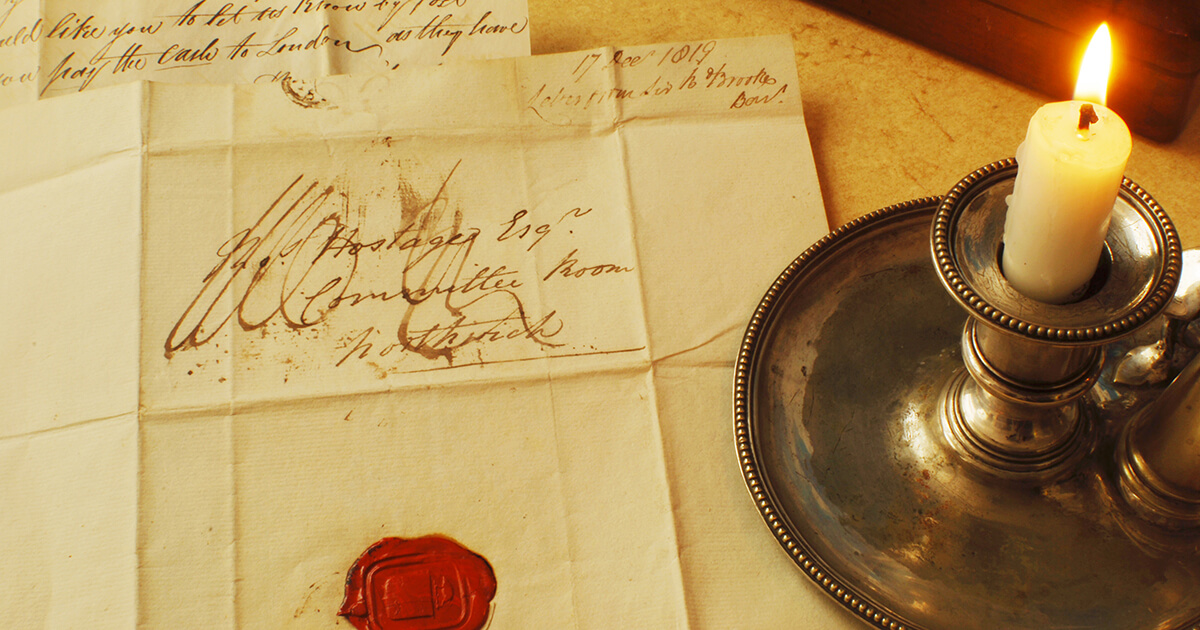 like you to let us know by post
pay the cash to London as they have
17 Decr 1819
Letter from Sir R Brooke
Bart.
Hostage Esqr.
Committee Room
Northwich